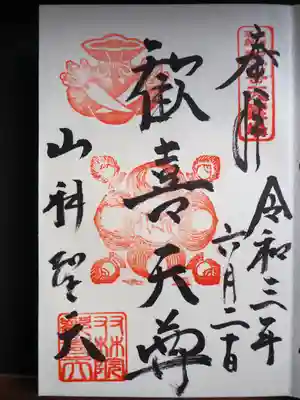 奉拝
令和三年
六月二十日
歡喜天尊
山科聖天
双林院